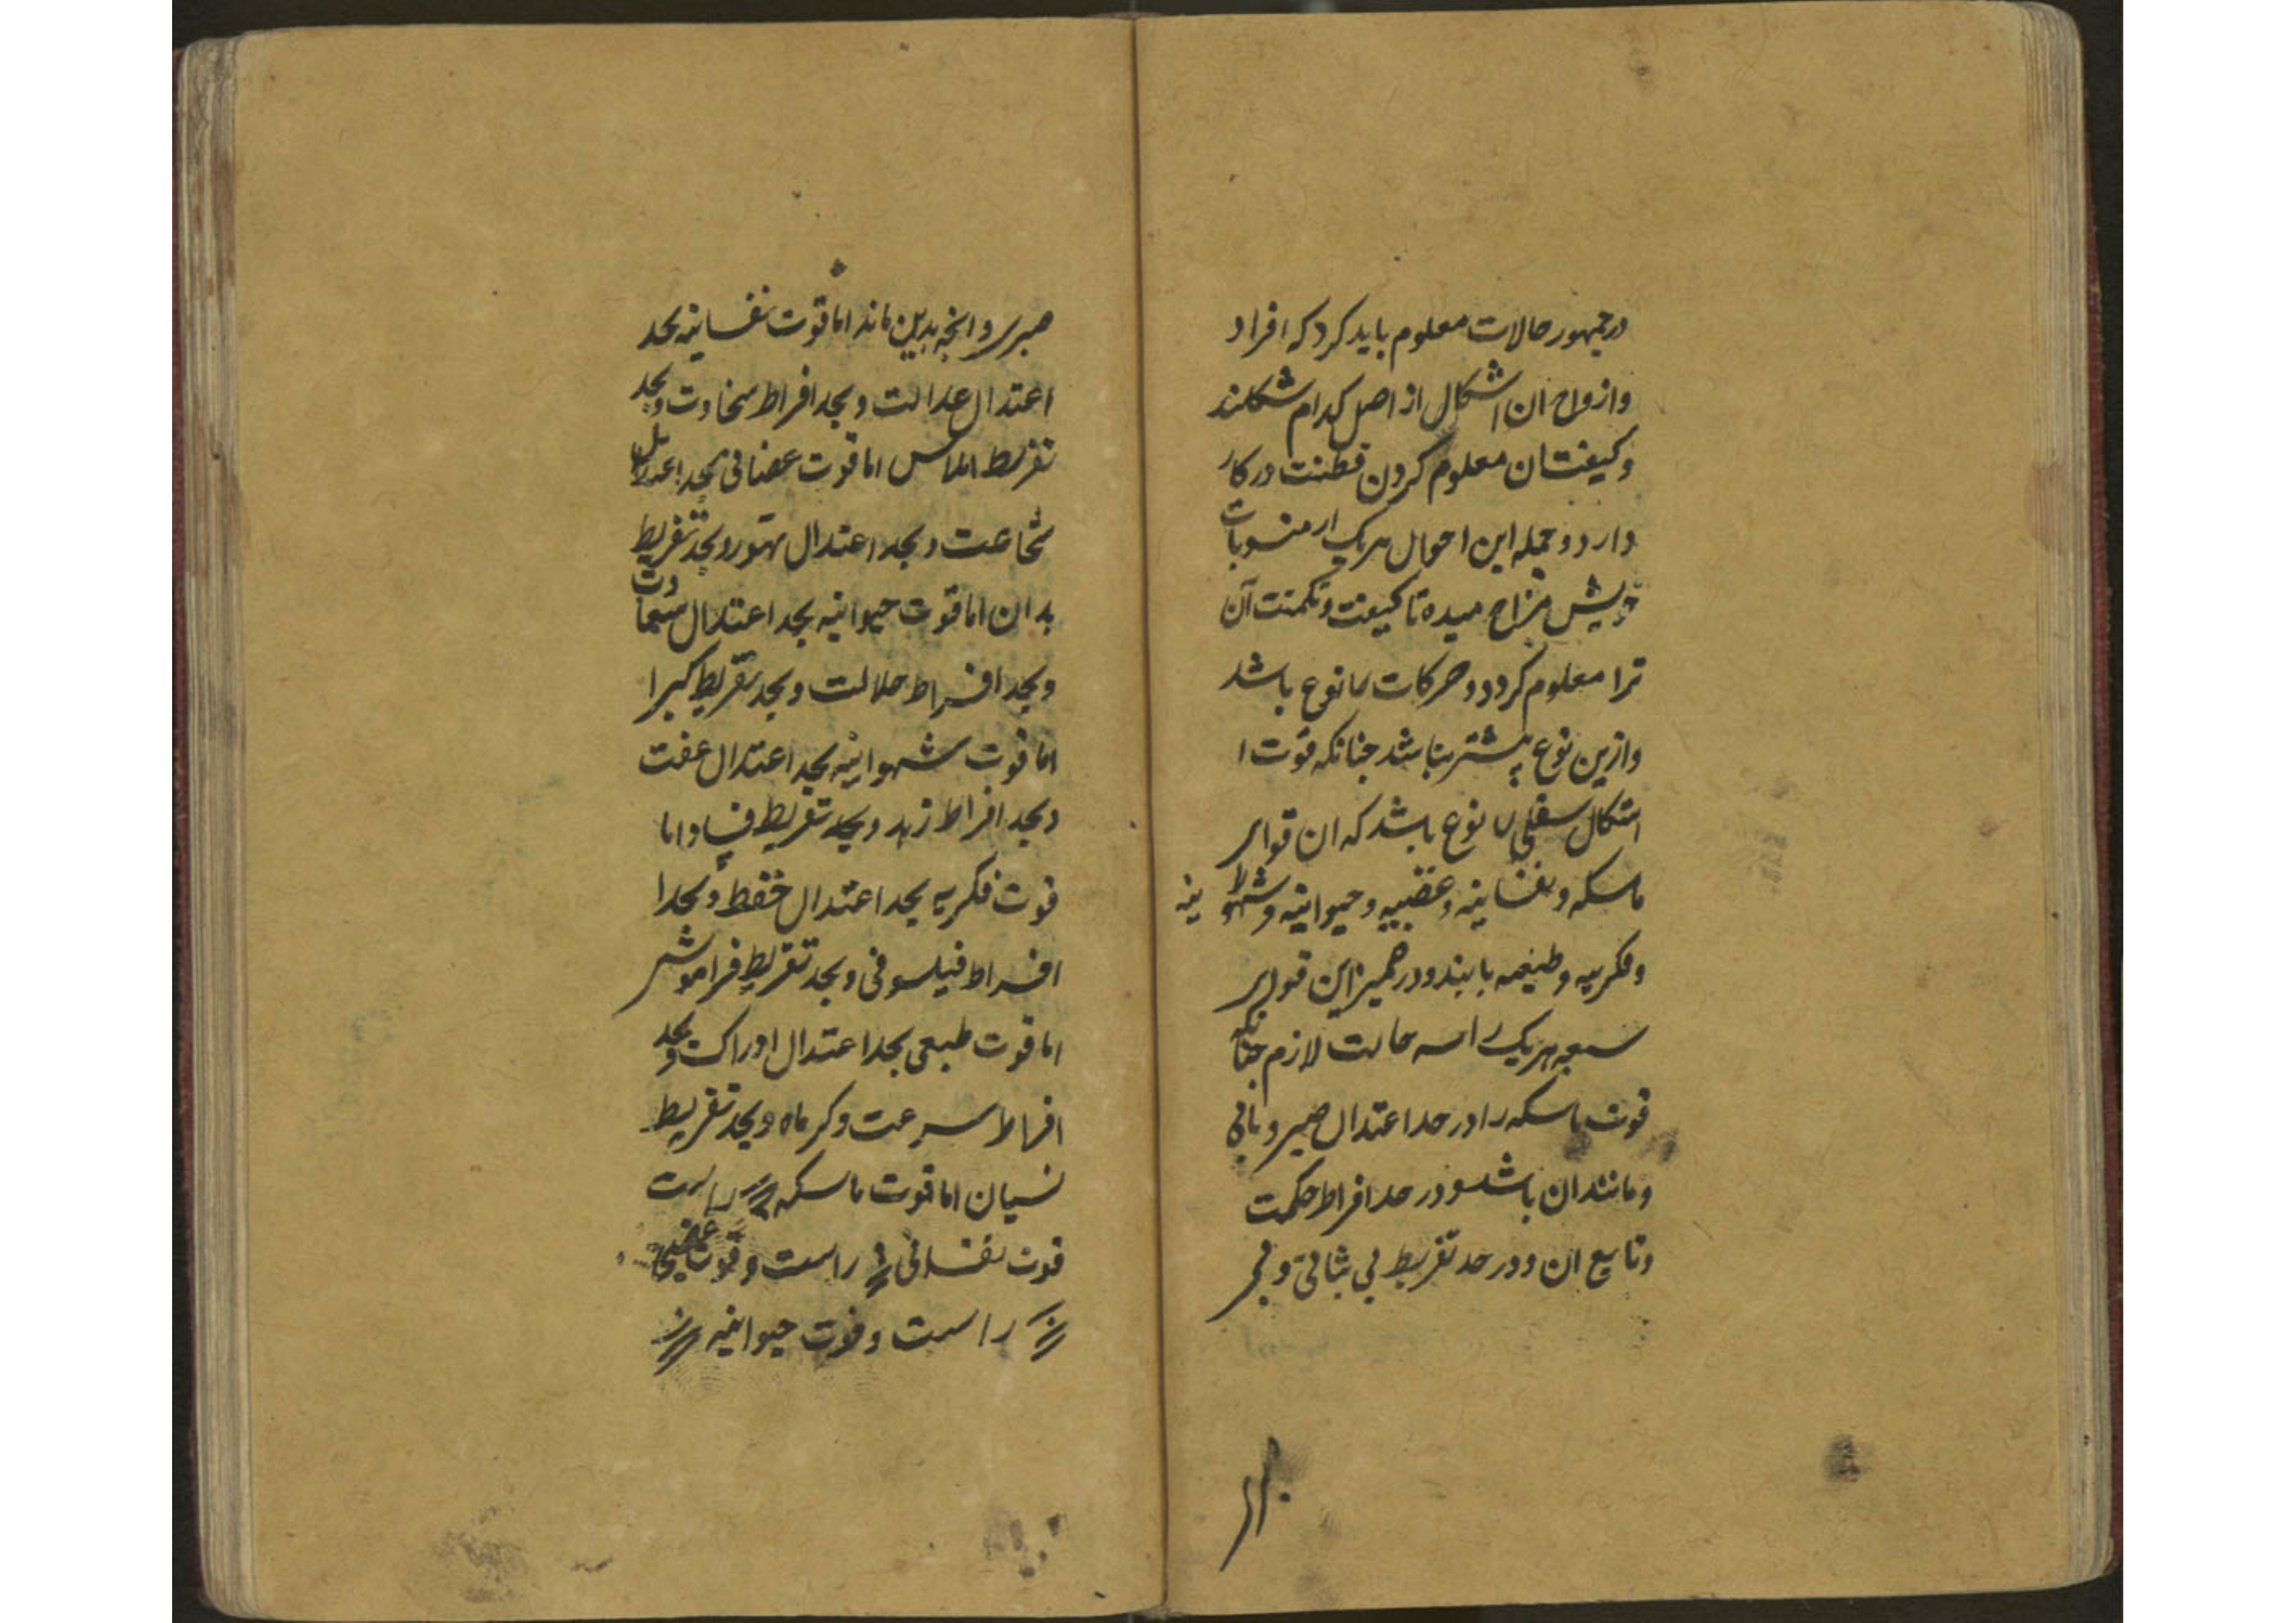 در جمهور حالات معلوم باید کرد که افراد
وازواج ان اشکال از اصل کدام شکلند
وکیفیتان معلوم کردن فطنت در کار
دارد و جمله این احوال هریک از منسوبات
خویش مزاج میده تا کیفیت و آن
ترا معلوم کردد و حرکات نوع باشد
وازین نوع بیشتر نباشد جنانکه قوت
اشکال سفلی نوع باشد که ان قوای
ماسکه و نفسانیه و غضبیه و حیوانیه و شهوانیه
وفکریه و طبیعه یابند و در همیز این قوای
سبعه هریک را سه حالت لازم جنانکه
قوت ماسکه را در حد اعتدال صبر و
ومانند ان باشد و در حد افراط حکمت
وتابع ان و در حد تفریط بی ثباتی و بی
صبری و انچه بدین ماند اما قوت نفسانیه بحد
اعتدال عدالت و بحد افراط سخاوت و بحد
تفریط اما قوت بحد اعتدال
شجاعت و بحد اعتدال تهور و بحد تفریط
بد ان اما قوت حیوانیه بحد اعتدال
وبحد افراط و بحد تفریط
اما قوت شهوانیه بحد اعتدال عفت
وبحد افراط زهد و بحد تفریط فساد اما
قوت فکریه بحد اعتدال و بحد
افراط فیلسوفی و بحد تفریط فراموشی
اما قوت طبعی بحد اعتدال ادراک و بحد
افراط سرعت و و بحد تفریط
نسیان اما قوت ماسکه راست
قوت نفسانی راست و قوت
راست و قوت حیوانیه